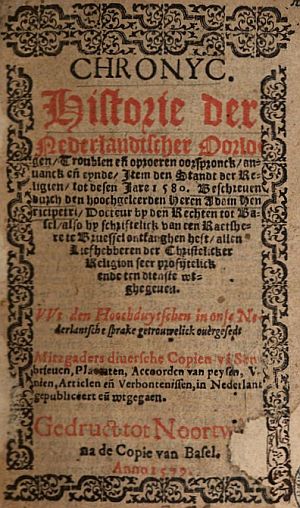 CHRONYC.
Historie der
Nederlandtscher Oorlo
gen/ Troublen eñ oproeren oorspronck/ an-
uanck eñ eynde/ Item den Standt der Re-
ligien/ tot desen Jare 1580. Beschreuen
durch den hoochgeleerden Heren Adam Hen
ricipetri/ Docteur by den Rechten tot Ba-
sel/ also hy schriftelick van een Raetshe-
re te Bruessel ontfanghen heft/ allen
Liefhebberen der Christelicker
Religion seer profijtelick
ende ten dienste wt-
ghegeuen.
Wt den Hoochduytschen in onse Ne-
derlantsche sprake getrouwelick ouergesedt
Mitzgaders diuersche Copien vā Sen
brieuen, Placaten, Accoorden van peysen, V
nien, Articlen eñ Verbontenissen, in Nederlant
gepubliceert eñ wtgegaen.
Gedruct tot Noortw
na de Copie van Basel.
Anno 1579.